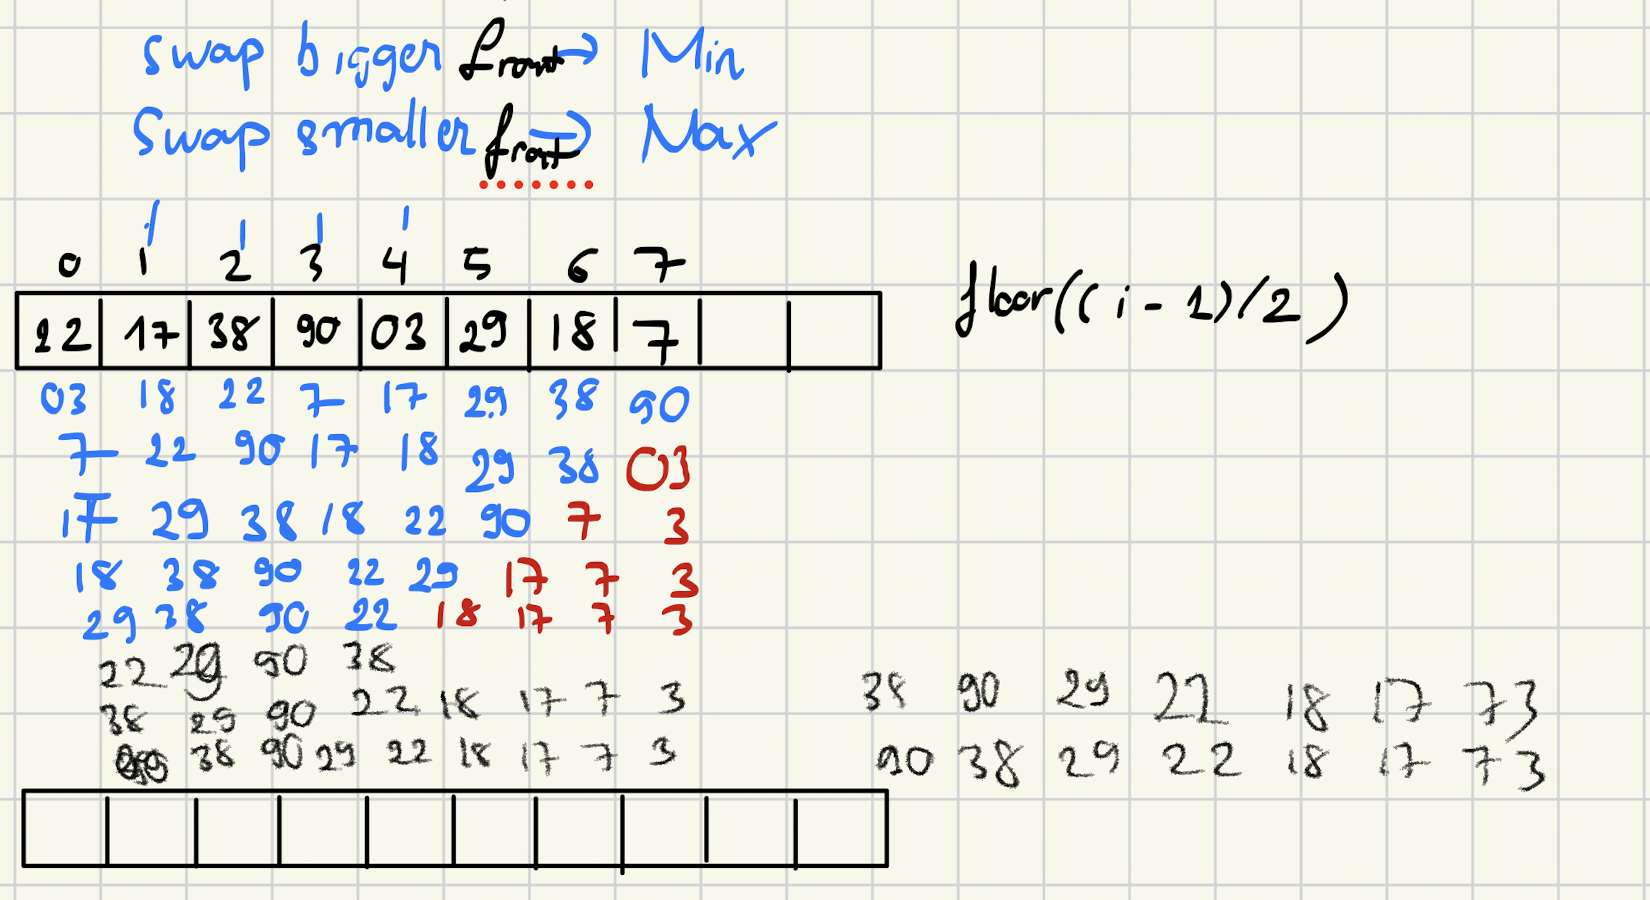 swap bigger front → Min
Swap smaller front → Max
0 1 2 3 4 5 6 7
22 17 38 90 03 29 18 7
floor((i - 1)/2)
03 18 22 7 17 29 38 90
7 22 90 17 18 29 38 03
17 29 38 18 22 90 7 3
18 38 90 22 29 17 7 3
29 38 90 22 18 17 7 3
22 29 90 38
38 29 90 22 18 17 7 3
38 90 29 22 18 17 7 3
38 90 29 22 18 17 7 3
90 38 29 22 18 17 7 3